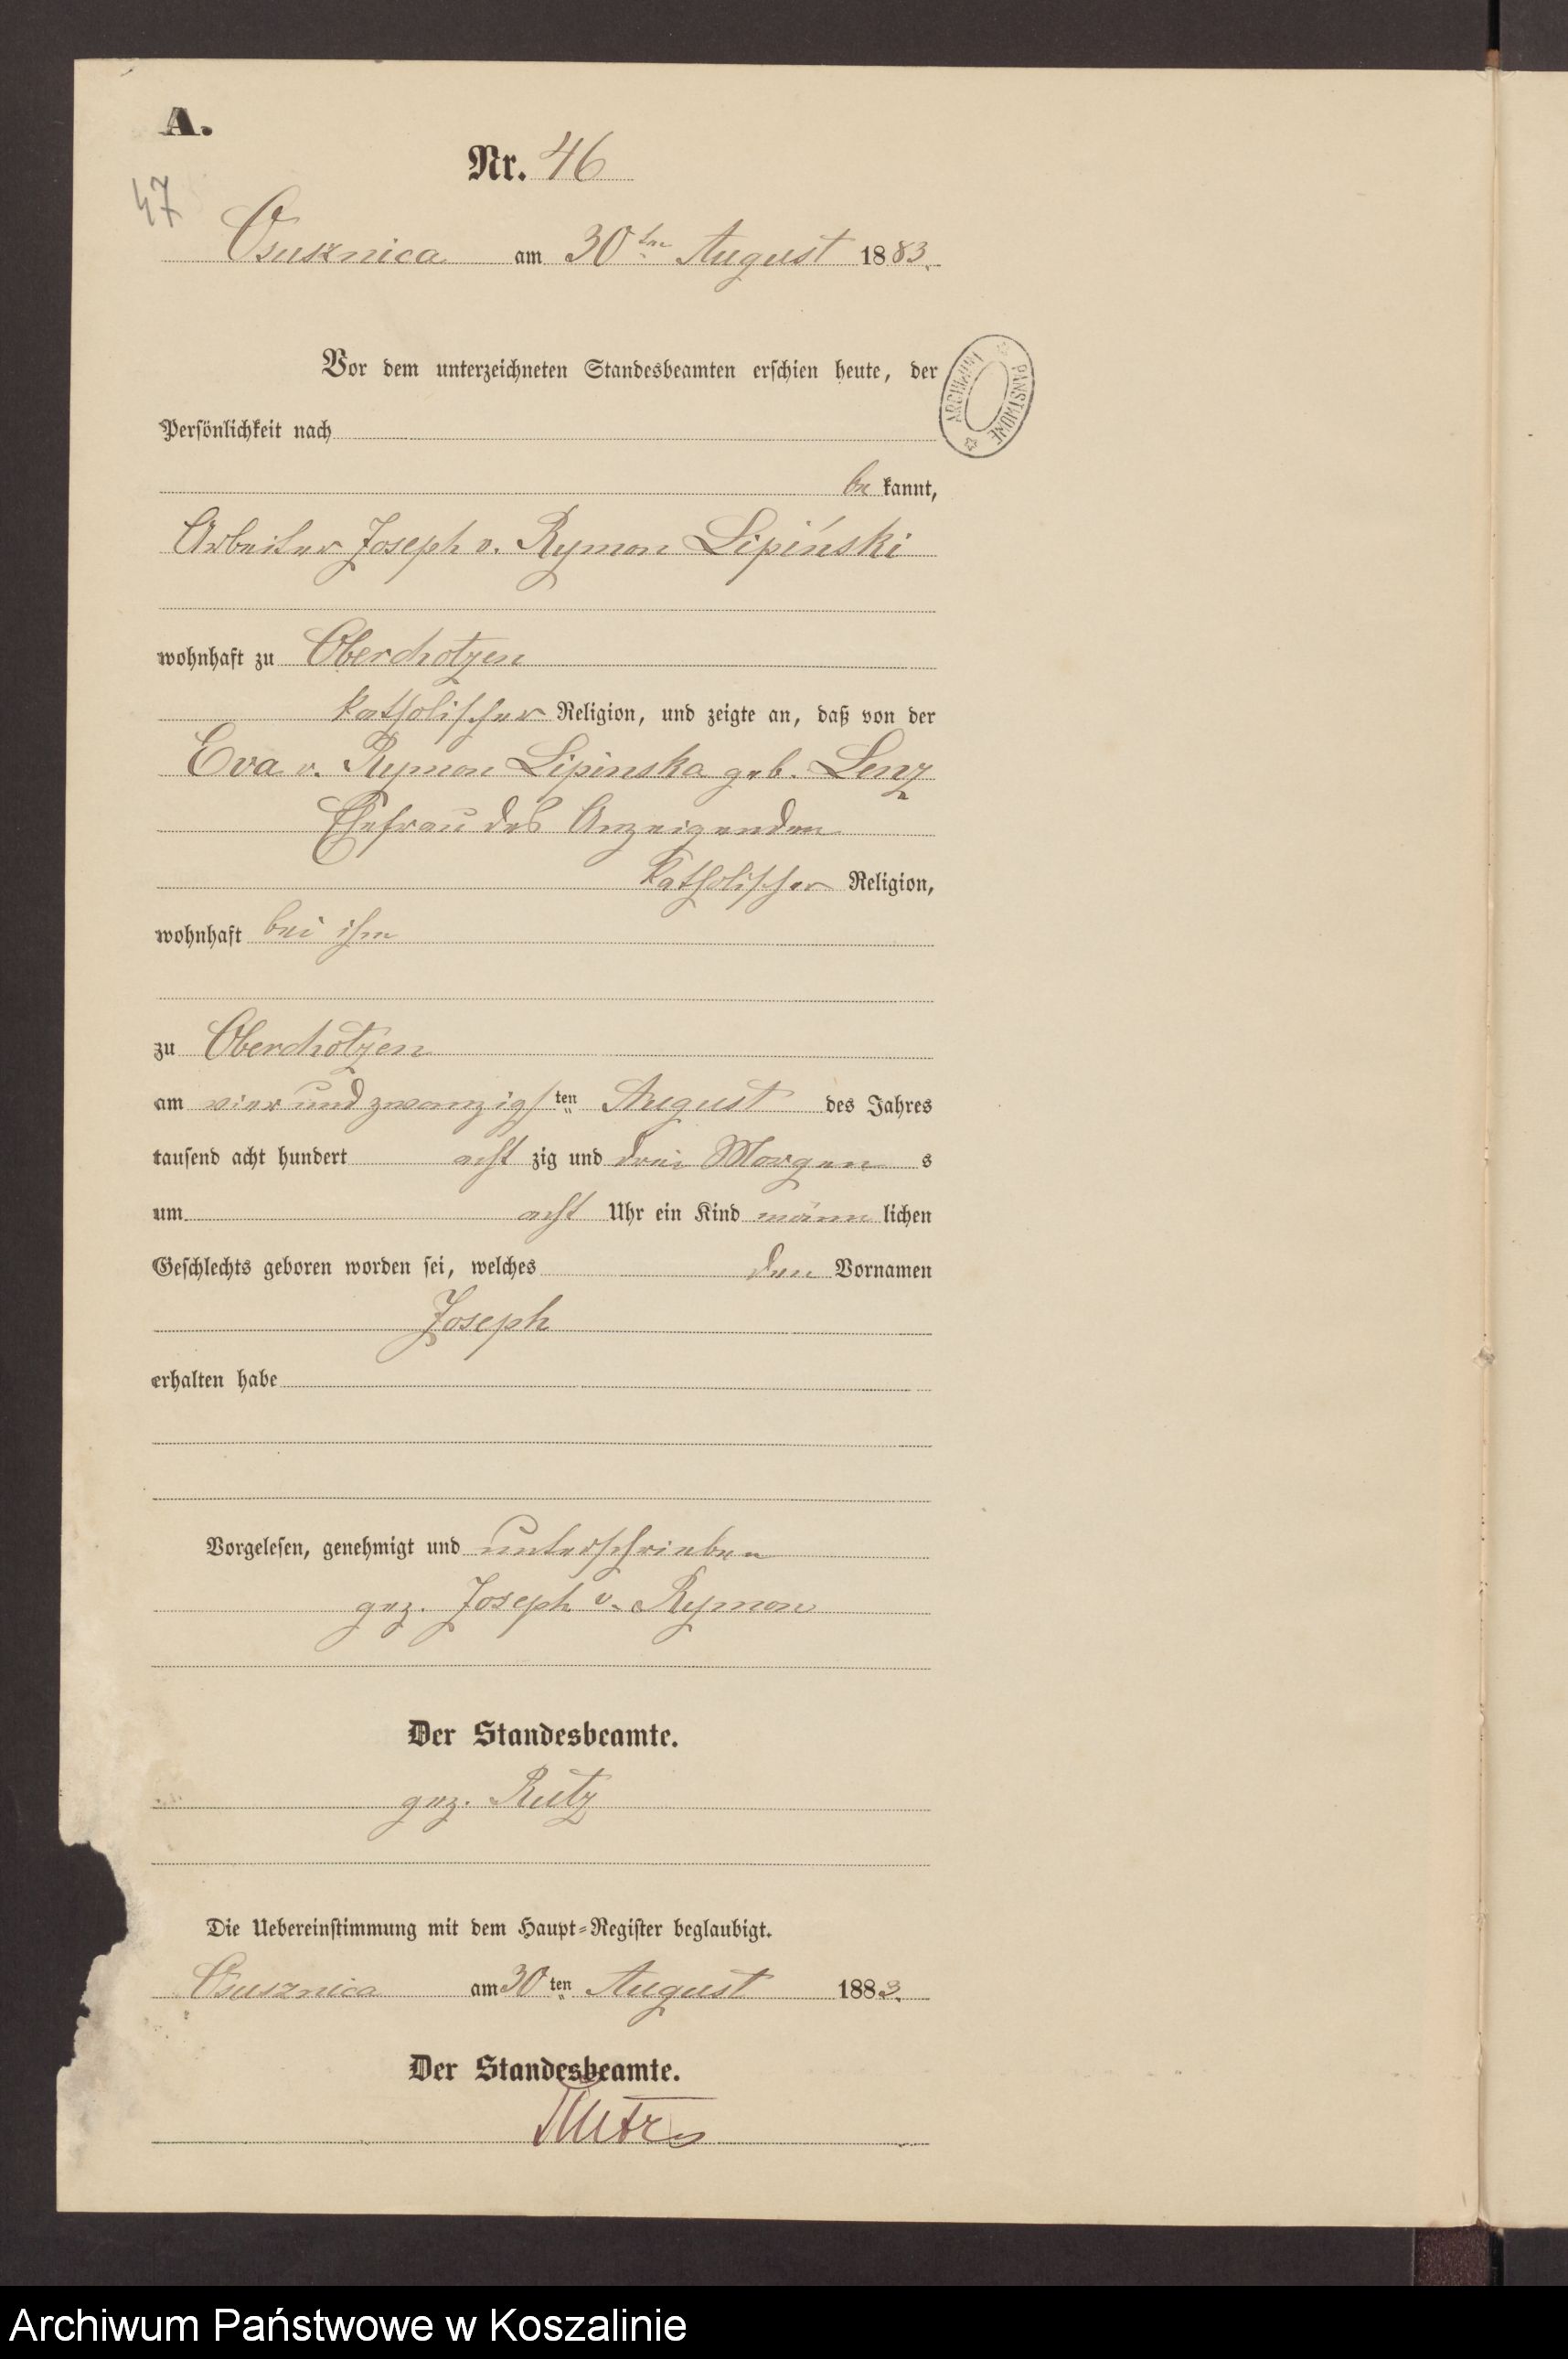 A.
Nr. 46
47
Osusznica am 30ten August 1883.
Vor dem unterzeichneten Standesbeamten erschien heute, der
Persönlichkeit nach
be kannt,
Arbeiter Joseph v. Rymon Lipiński
wohnhaft zu Oberchotzen
katholischer Religion, und zeigte an, daß von der
Eva v. Rymon Lipinska geb. Lenz
Ehefrau des Anzeigenden
katholischer Religion,
wohnhaft bei ihm
zu Oberchotzen
am vier und zwanzigsten August des Jahres
tausend acht hundert acht zig und drei Morgen s
um acht Uhr ein Kind männ lichen
Geschlechts geboren worden sei, welches den Vornamen
Joseph
erhalten habe
Vorgelesen, genehmigt und unterschrieben
gez. Joseph v. Rymon
Der Standesbeamte.
gez. Rutz
Die Uebereinstimmung mit dem Haupt=Register beglaubigt.
Osusznica am 30ten August 1883.
Der Standesbeamte.
Rutz
ARCHIWUM PAŃSTWOWE
Archiwum Państwowe w Koszalinie